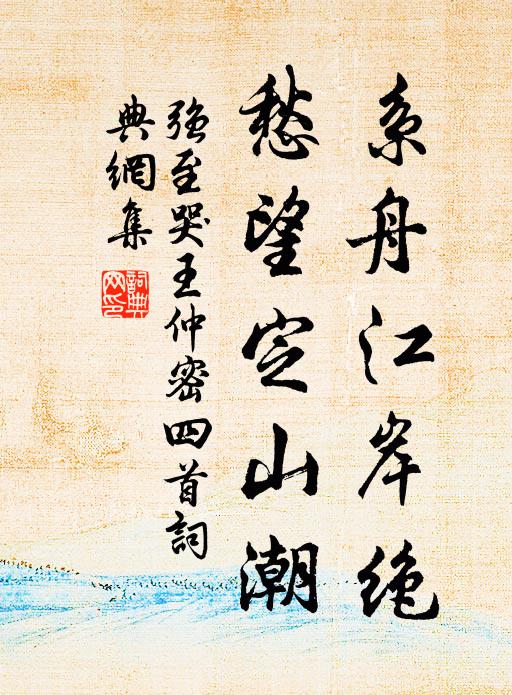 系舟江岸绝
愁望定山潮
强至哭王仲密四首詞
典網集
詞典網印